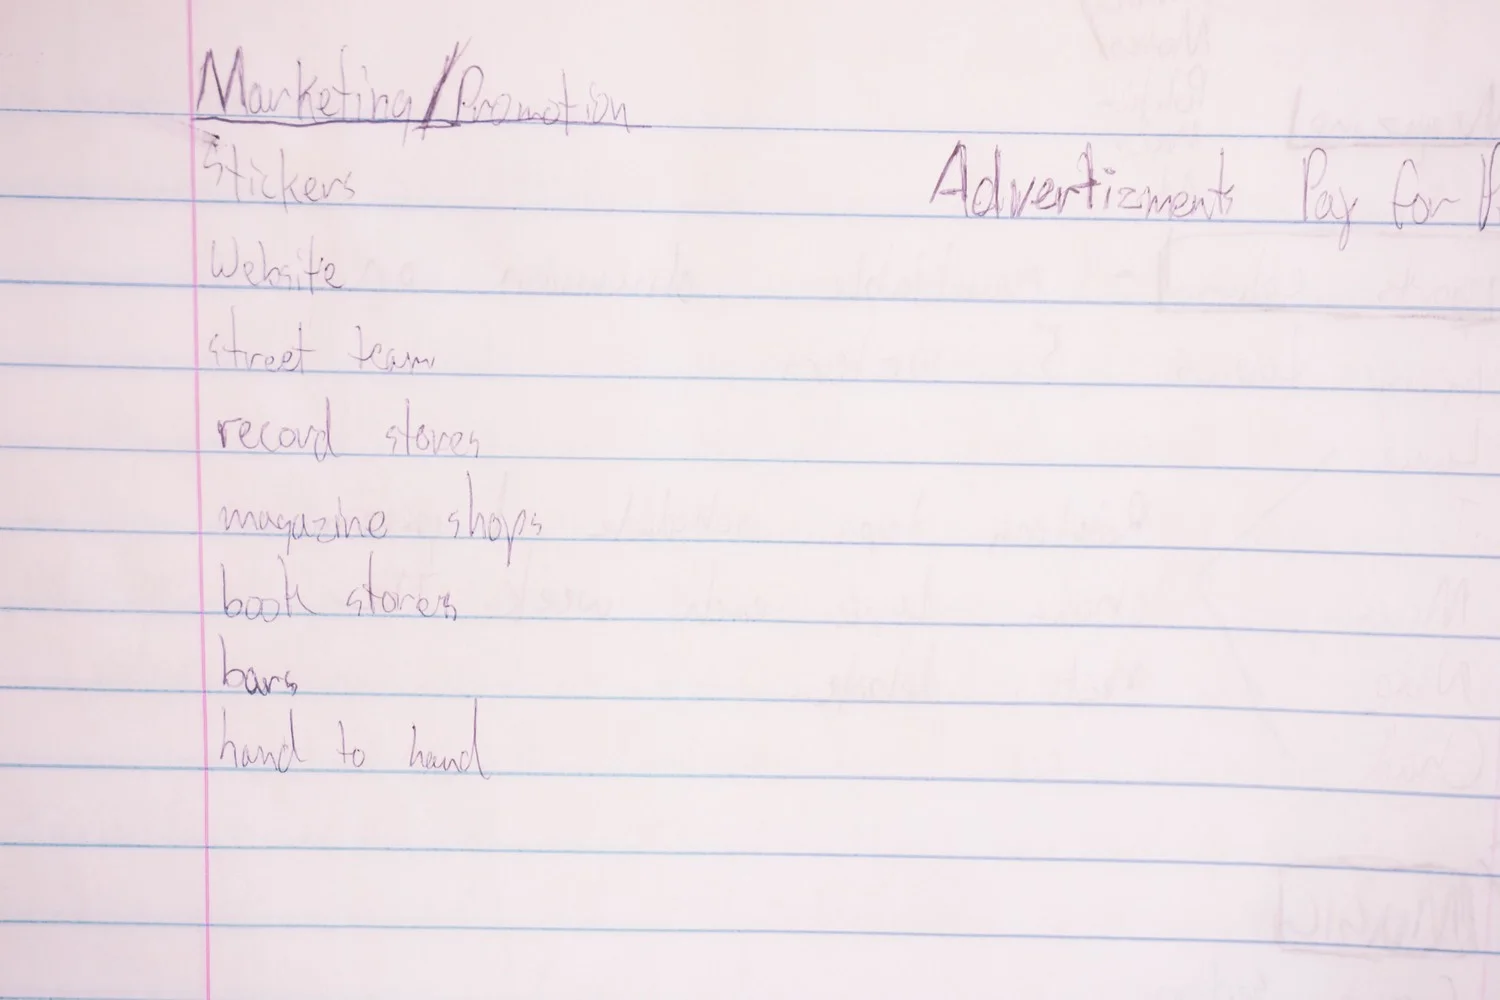 Marketing/Promotion
Stickers
Advertizments Pay for
Website
street team
record stores
magazine shops
book stores
bars
hand to hand